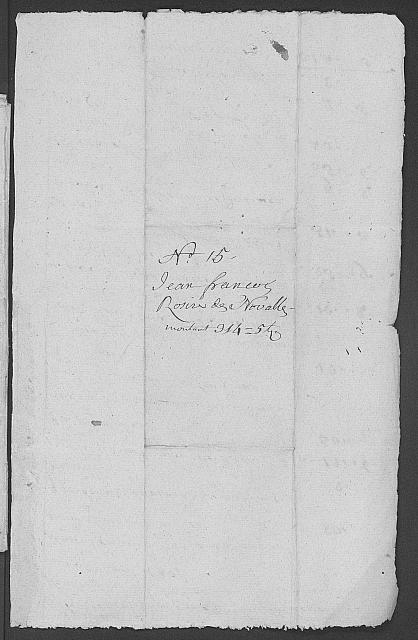 No 15.
Jean francoy
Rosire des Noualles
montant 314=5